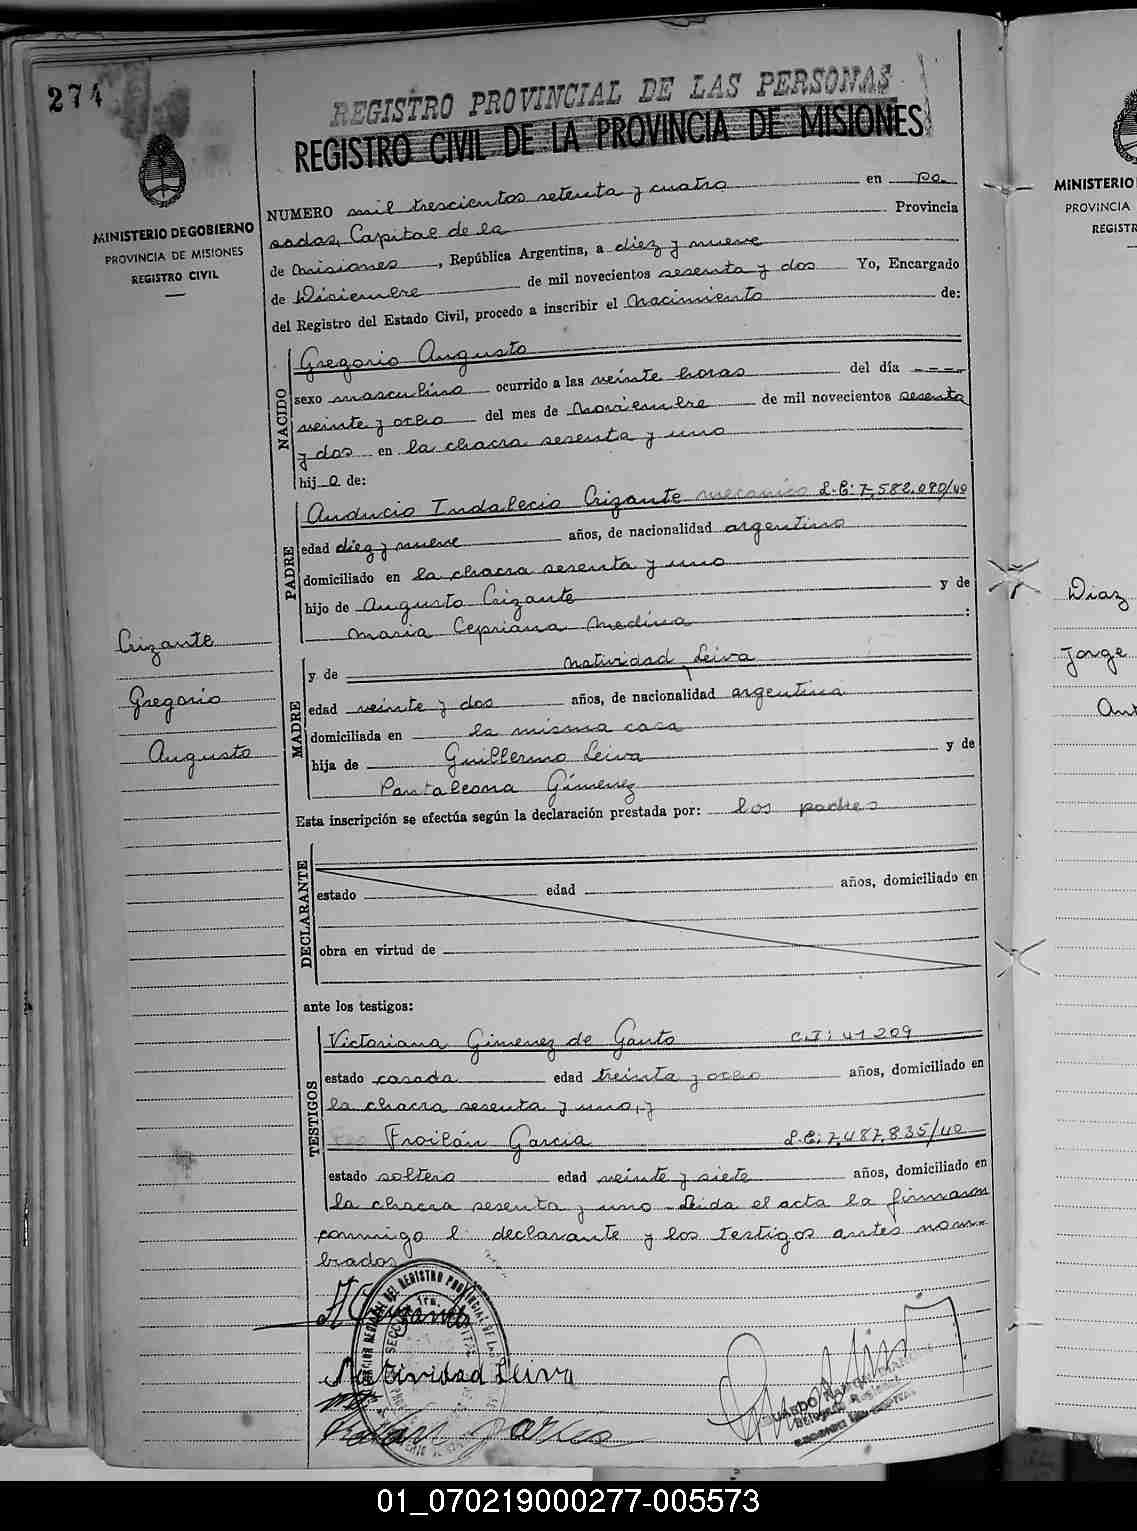 274
REGISTRO PROVINCIAL DE LAS PERSONAS
REGISTRO CIVIL DE LA PROVINCIA DE MISIONES
MINISTERIO DE GOBIERNO
PROVINCIA DE MISIONES
REGISTRO CIVIL
NUMERO mil trescientos setenta y cuatro en Po-
sadas, Capital de la Provincia
de Misiones, República Argentina, a diez y nueve
de Diciembre de mil novecientos sesenta y dos Yo, Encargado
del Registro del Estado Civil, procedo a inscribir el Nacimiento de:
NACIDO
Gregorio Augusto
sexo masculino ocurrido a las veinte horas del día ----
veinte y ocho del mes de Noviembre de mil novecientos sesenta
y dos en la chacra sesenta y uno
hij o de:
PADRE
Auducio Indalecio Crizante mecanico L.E: 7,582.090/40
edad diez y nueve años, de nacionalidad argentino
domiciliado en la chacra sesenta y uno
hijo de Augusto Crizante y de
Maria Cepriana Medina :
MADRE
y de Natividad Leiva
edad veinte y dos años, de nacionalidad argentina
domiciliada en la misma casa
hija de Guillermo Leiva y de
Pantaleona Gimenez
Crizante
Gregorio
Augusto
Esta inscripción se efectúa según la declaración prestada por: los padres
DECLARANTE
estado edad años, domiciliado en
obra en virtud de
ante los testigos:
TESTIGOS
Victoriana Gimenez de Gauto C.I: 41209
estado casada edad treinta y ocho años, domiciliado en
la chacra sesenta y uno, y
Froilán Garcia L.E: 7,487,835/40
estado soltero edad veinte y siete años, domiciliado en
la chacra sesenta y uno Leida el acta la firmaron
conmigo l declarante y los testigos antes nom-
brados
Natividad Leiva
MINISTERIO
PROVINCIA
REGISTR
Diaz
Jorge
Ant
01_070219000277-005573